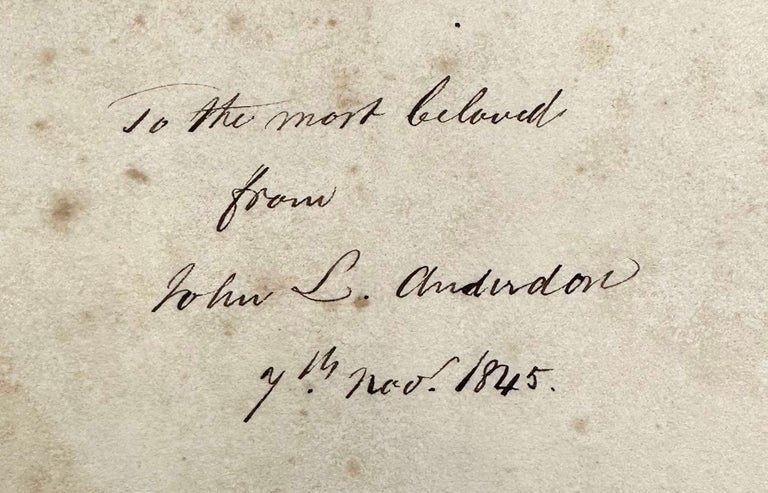 To the most beloved
from
John L. Anderdon
7th. Nov. 1845.